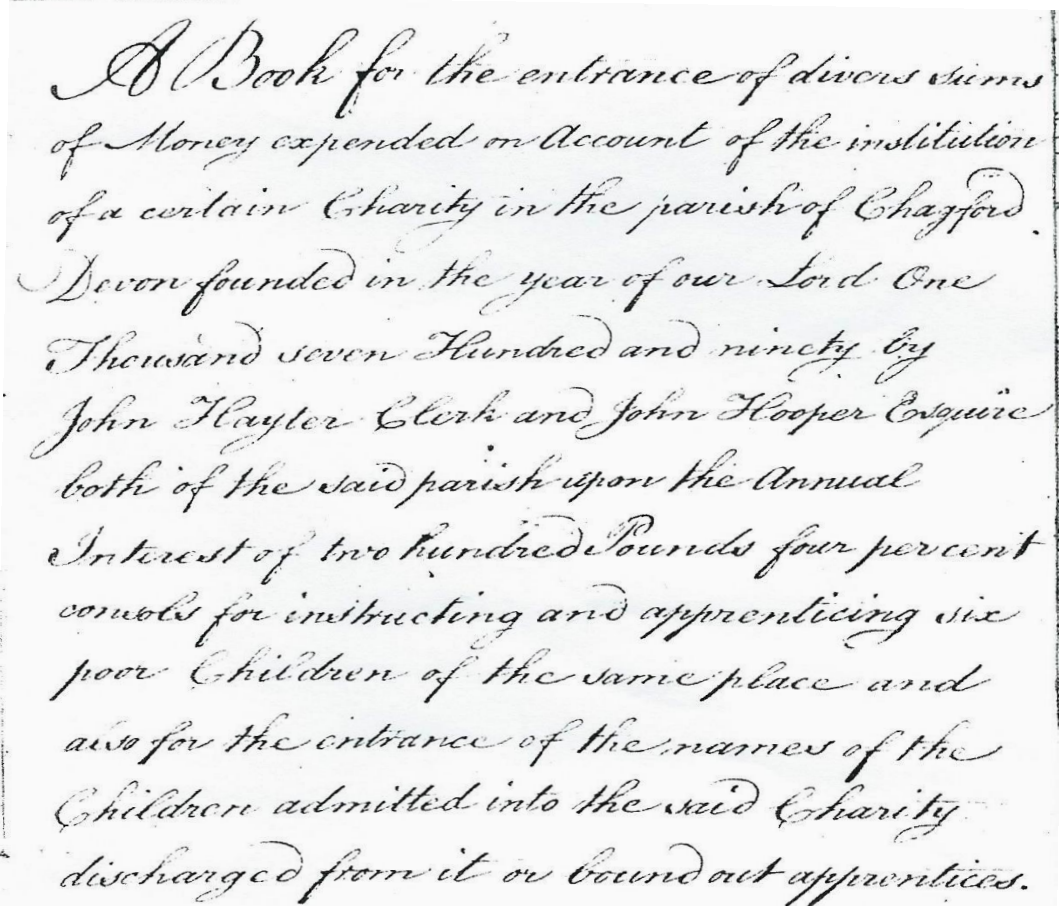 A Book for the entrance of divers sums
of Money expended on Account of the institution
of a certain Charity in the parish of Chagford
Devon founded in the year of our Lord One
Thousand seven Hundred and ninety by
John Hayter Clerk and John Hooper Esquire
both of the said parish upon the Annual
Interest of two hundred Pounds four per cent
consols for instructing and apprenticing six
poor Children of the same place and
also for the entrance of the names of the
Children admitted into the said Charity
discharged from it or bound out apprentices.